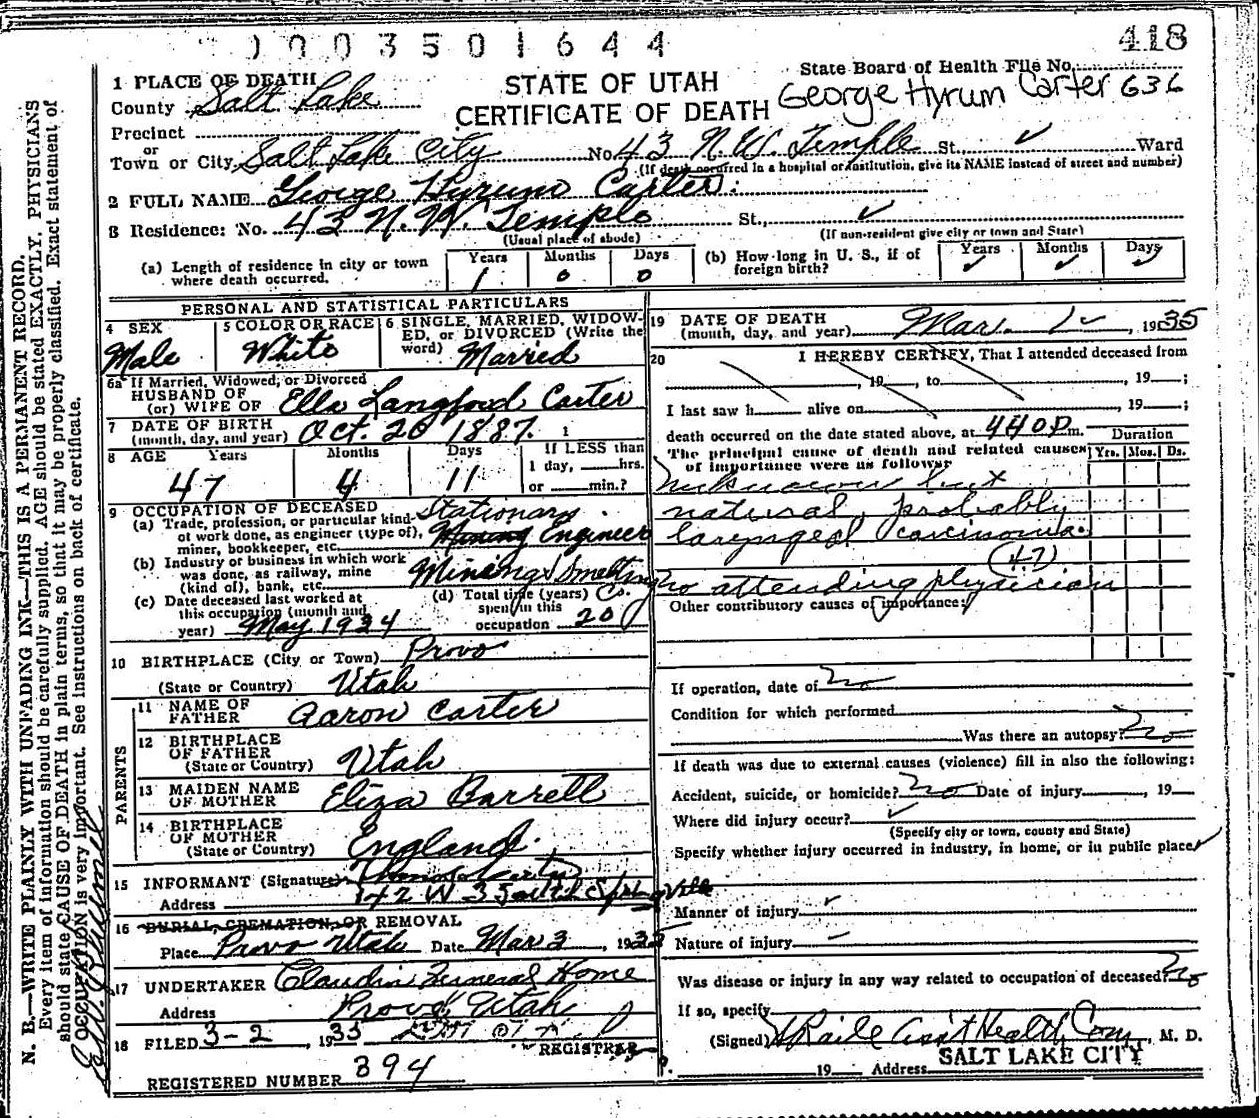 1003501644
418
1 PLACE OF DEATH
County Salt Lake
STATE OF UTAH
CERTIFICATE OF DEATH
State Board of Health File No.
George Hyrum Carter 636
Precinct
or
Town or City Salt Lake City No. 43 N.W. Temple St. ✓ Ward
(If death occurred in a hospital or institution, give its NAME instead of street and number)
2 FULL NAME George Hyrum Carter
3 Residence: No. 43 N.W. Temple St., ✓
(Usual place of abode) (If non-resident give city or town and State)
(a) Length of residence in city or town where death occurred. Years 1 Months 0 Days 0
(b) How long in U. S., if of foreign birth? Years ✓ Months ✓ Days ✓
PERSONAL AND STATISTICAL PARTICULARS
4 SEX Male
5 COLOR OR RACE White
6 SINGLE, MARRIED, WIDOWED, or DIVORCED (Write the word) Married
6a If Married, Widowed, or Divorced
HUSBAND OF
(or) WIFE OF Ella Langford Carter
7 DATE OF BIRTH
(month, day, and year) Oct. 20 1887. 1
8 AGE Years 47 Months 4 Days 11
If LESS than
1 day, ___hrs.
or ___min.?
9 OCCUPATION OF DECEASED
(a) Trade, profession, or particular kind of work done, as engineer (type of), miner, bookkeeper, etc. Stationary Mining Engineer
(b) Industry or business in which work was done, as railway, mine (kind of), bank, etc. Mining & Smelting Co.
(c) Date deceased last worked at this occupation (month and year) May 1934
(d) Total time (years) spent in this occupation 20
10 BIRTHPLACE (City or Town) Provo
(State or Country) Utah
PARENTS
11 NAME OF FATHER Aaron Carter
12 BIRTHPLACE OF FATHER
(State or Country) Utah
13 MAIDEN NAME OF MOTHER Eliza Barrell
14 BIRTHPLACE OF MOTHER
(State or Country) England.
15 INFORMANT (Signature) Carter
Address 142 W 3 South Springville
16 BURIAL, CREMATION, OR REMOVAL
Place Provo Utah Date Mar 3, 1935
17 UNDERTAKER Claudin Funeral Home
Address Provo, Utah
18 FILED 3-2 1935
REGISTRAR
REGISTERED NUMBER 394
19 DATE OF DEATH
(month, day, and year) Mar. 1, 1935
20 I HEREBY CERTIFY, That I attended deceased from
___, 19__, to ___, 19__;
I last saw h___ alive on ___, 19__;
death occurred on the date stated above, at 440 P m.
The principal cause of death and related causes of importance were as follows:
Duration
Yrs. Mos. Ds.
unknown but
natural, probably
laryngeal carcinoma.
(47)
no attending physician
Other contributory causes of importance:
If operation, date of no
Condition for which performed
Was there an autopsy? no
If death was due to external causes (violence) fill in also the following:
Accident, suicide, or homicide? no Date of injury ___, 19__
Where did injury occur? ✓
(Specify city or town, county and State)
Specify whether injury occurred in industry, in home, or in public place ✓
Manner of injury
Nature of injury
Was disease or injury in any way related to occupation of deceased? no
If so, specify
(Signed) Ass't Health Com, M. D.
19__ Address SALT LAKE CITY
N. B.—WRITE PLAINLY WITH UNFADING INK—THIS IS A PERMANENT RECORD.
Every item of information should be carefully supplied. AGE should be stated EXACTLY. PHYSICIANS
should state CAUSE OF DEATH in plain terms, so that it may be properly classified. Exact statement of
OCCUPATION is very important. See instructions on back of certificate.